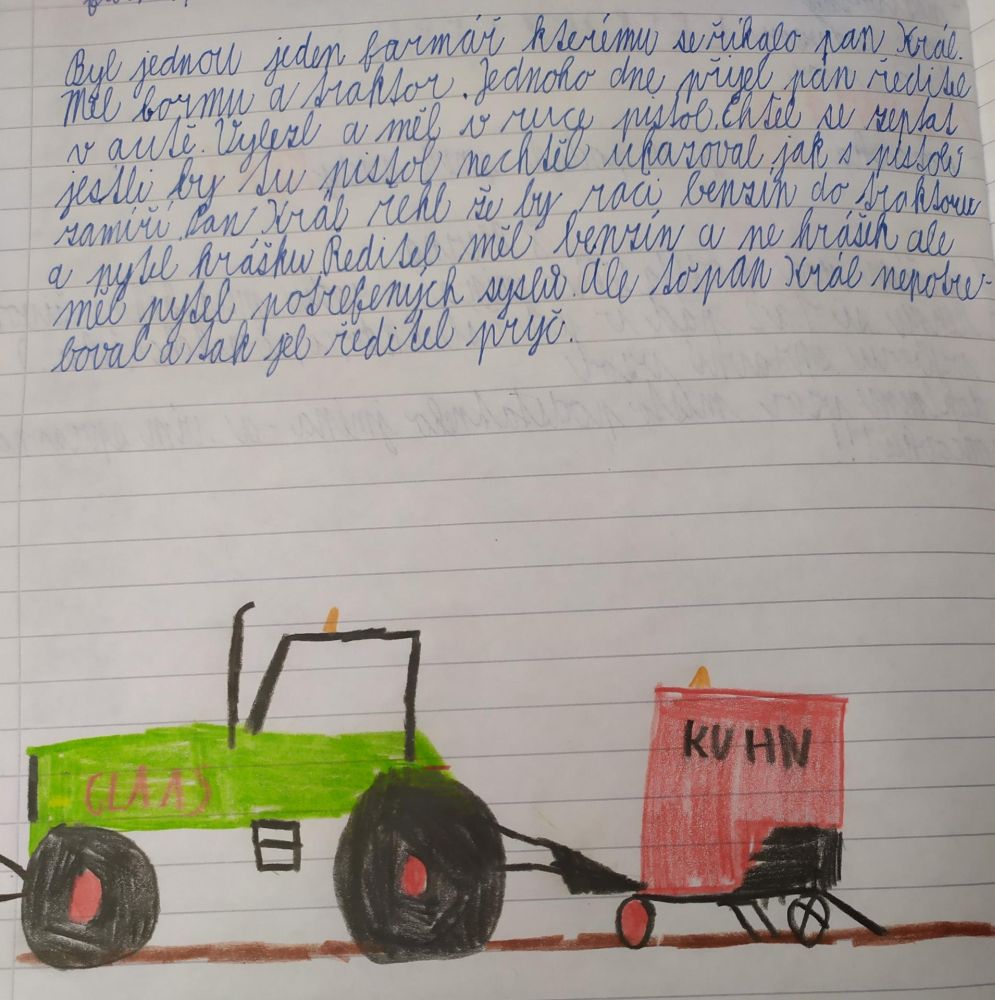 Byl jednou jeden farmář kterému se říkalo pan Král.
Měl formu a traktor. Jednoho dne přijel pan ředitel
v autě. Vylezl a měl v ruce pistol. Chtěl se zeptat
jestli by tu pistol nechtěl ukazoval jak s pistolí
zamíří. Pan Král řekl že by raci benzín do traktoru
a pytel hrášku Ředitel měl benzín a ne hrášek ale
měl pytel potřebených syslů. Ale to pan Král nepotře-
boval a tak jel ředitel pryč.
CLAAS
KUHN